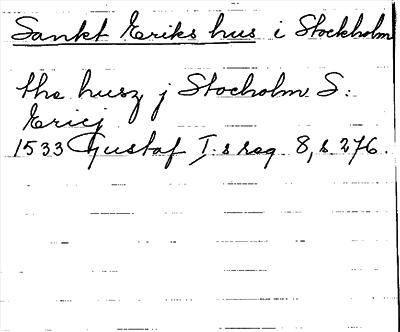 Sankt Eriks hus i Stockholm
the husz j Stocholm S:
Ericj
1533 Gustaf I:s reg. 8, s. 276.